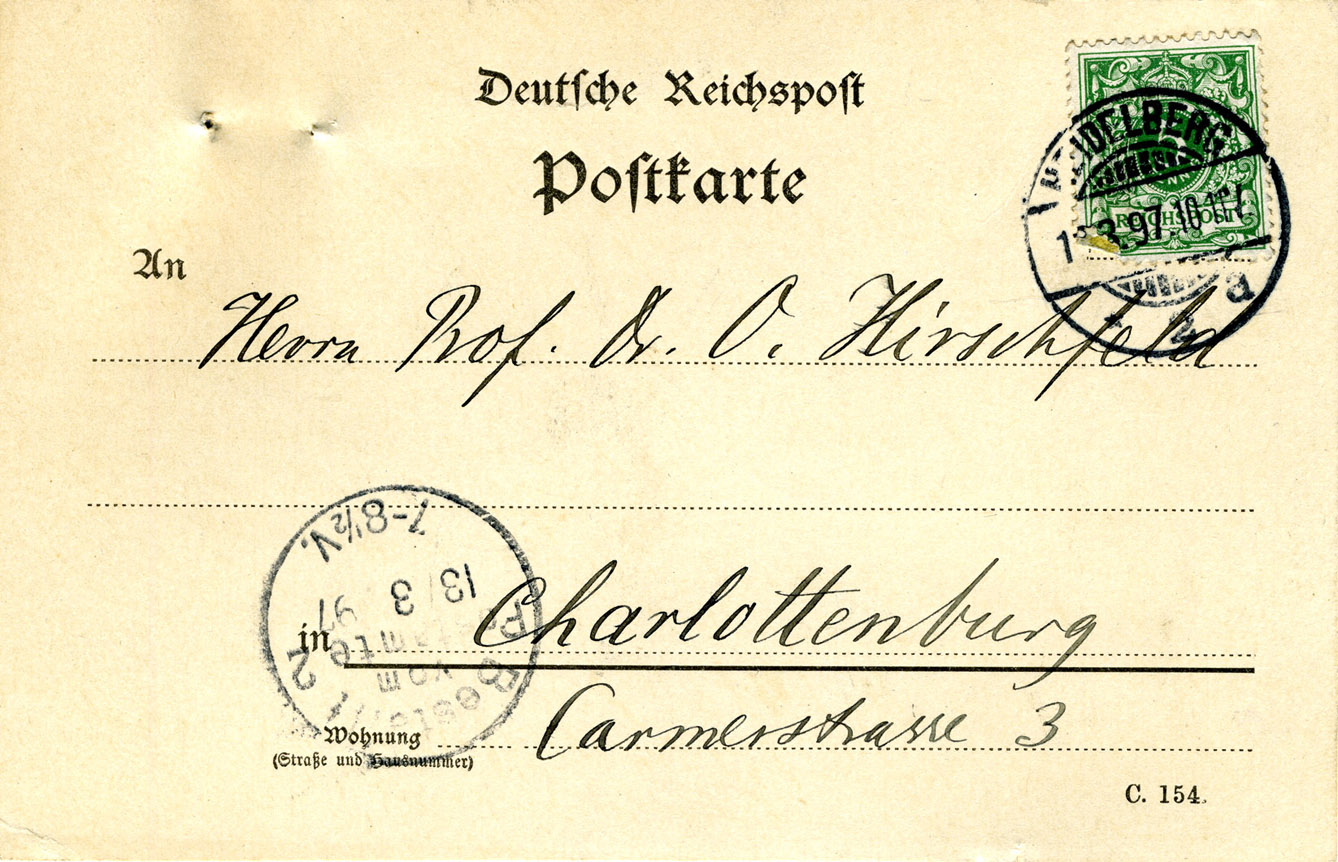 Deutsche Reichspost
Postkarte
REICHSPOST
HEIDELBERG
3.97.
* 2 a
An
Herrn Prof. Dr. O. Hirschfeld
7-8½V.
13/3
97
vom
2
in Charlottenburg
Wohnung Carmerstrasse 3
(Straße und Hausnummer)
C. 154.